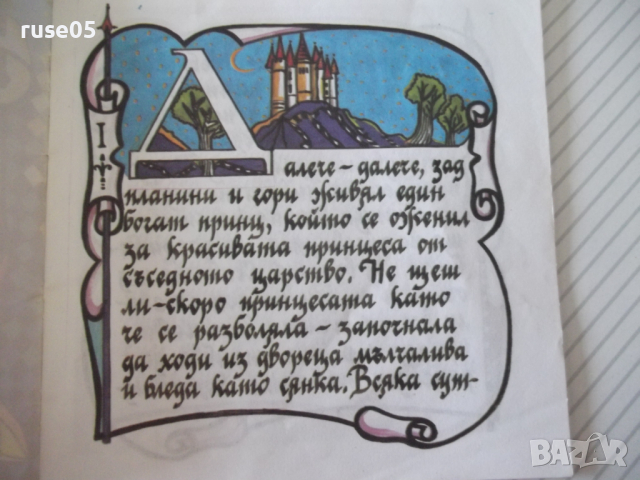 ruse05
I
Далече – далече, зад
планини и гори живял един
богат принц, който се оженил
за красивата принцеса от
съседното царство. Не щеш
ли – скоро принцесата като
че се разболяла – започнала
да ходи из двореца мълчалива
и бледа като сянка. Всяка сут-
BAZAR